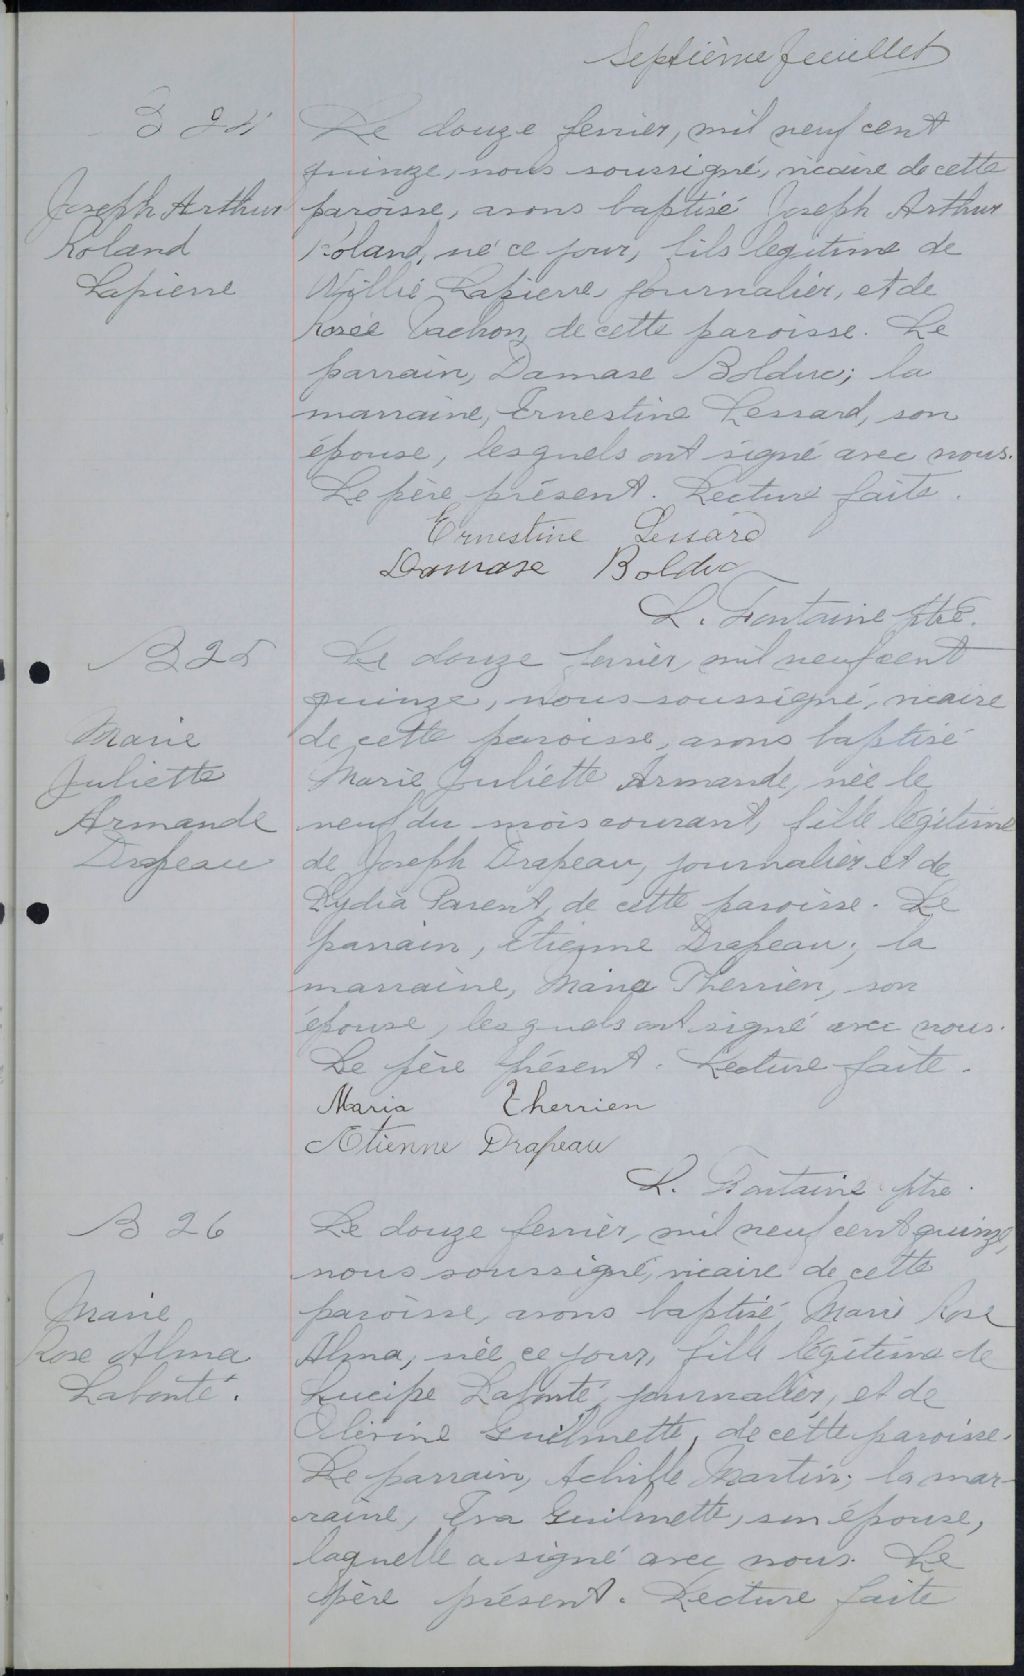 Septième feuillet
B 24
Joseph Arthur
Roland
Lapierre
Le douze fevrier, mil neuf cent
quinze, nous soussigné, vicaire de cette
paroisse, avons baptisé Joseph Arthur
Roland, né ce jour, fils legitime de
Willie Lapierre, journalier, et de
Rosée Vachon, de cette paroisse. Le
parrain, Damase Bolduc; la
marraine, Ernestine Lessard, son
épouse, lesquels ont signé avec nous.
Le père présent. Lecture faite.
Ernestine Lessard
Damase Bolduc
L. Fontaine ptre.
B 25
Marie
Juliette
Armande
Drapeau
Le douze fevrier, mil neuf cent
quinze, nous soussigné, vicaire
de cette paroisse, avons baptisé
Marie Juliette Armande, née le
neuf du mois courant, fille légitime
de Joseph Drapeau, journalier et de
Lydia Parent, de cette paroisse. Le
parrain, Etienne Drapeau; la
marraine, Maria Therrien, son
épouse, lesquels ont signé avec nous.
Le père présent. Lecture faite.
Maria Therrien
Etienne Drapeau
L. Fontaine ptre.
B 26
Marie
Rose Alma
Labonté.
Le douze fevrier, mil neuf cent quinze,
nous soussigné, vicaire de cette
paroisse, avons baptisé Marie Rose
Alma, née ce jour, fille légitime de
Labonté, journalier, et de
Guilmette, de cette paroisse.
Le parrain, Achille Martin; la mar-
raine, Eva Guilmette, son épouse,
laquelle a signé avec nous. Le
père présent. Lecture faite